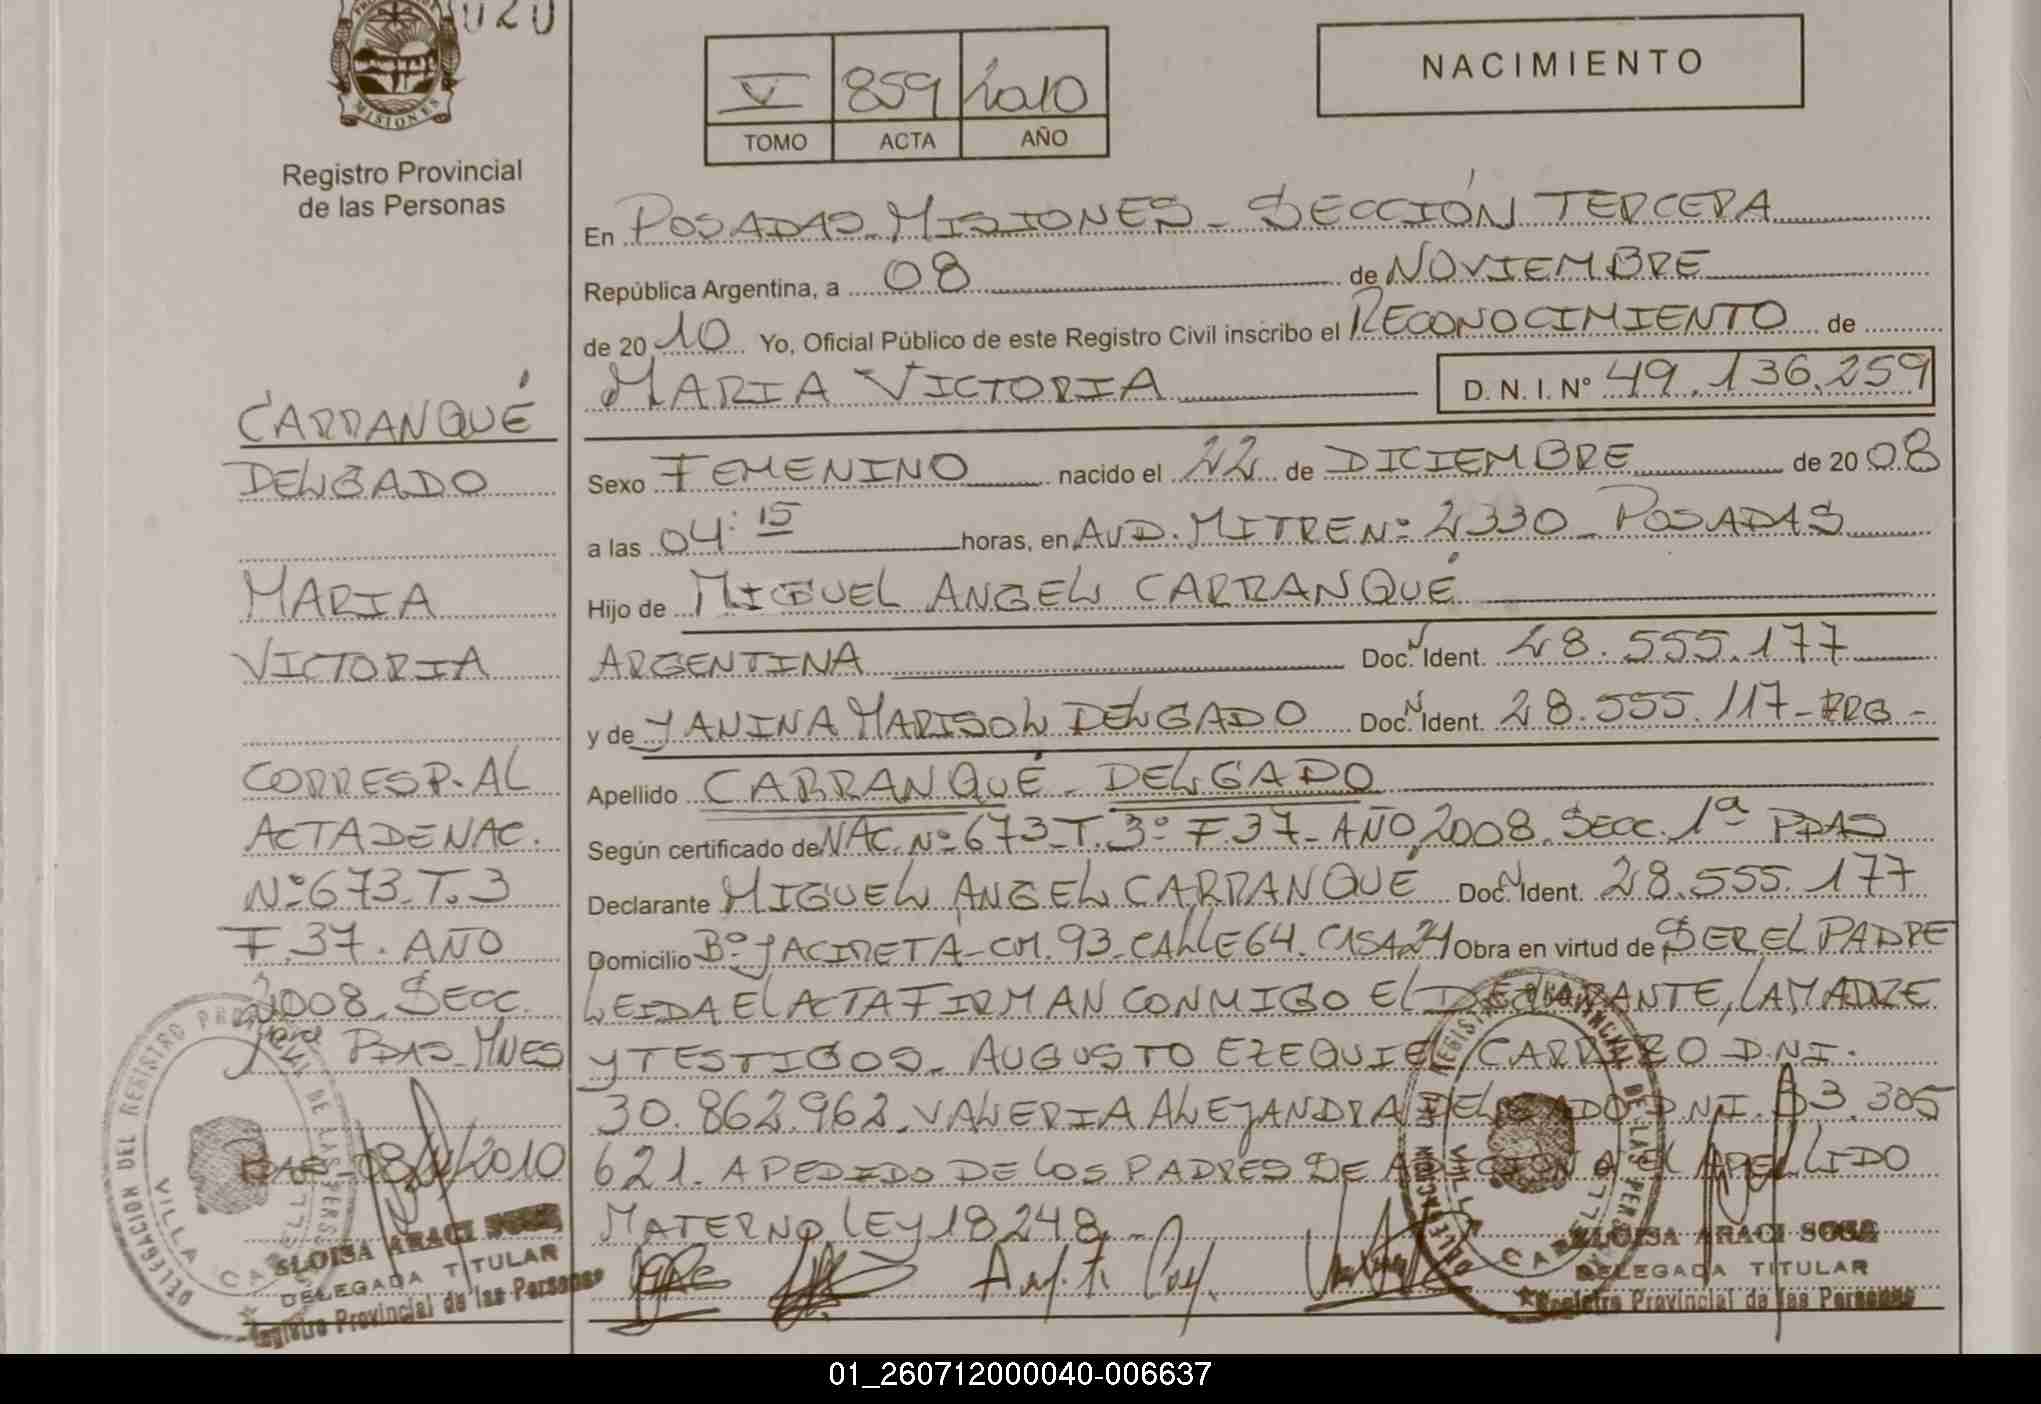 020
MISIONES
Registro Provincial
de las Personas
V 859 2010
TOMO ACTA AÑO
NACIMIENTO
En POSADAS-MISIONES - SECCIÓN TERCERA
República Argentina, a 08 de NOVIEMBRE
de 20 10 Yo, Oficial Público de este Registro Civil inscribo el RECONOCIMIENTO de
MARIA VICTORIA D. N. I. N° 49.136.259
Sexo FEMENINO nacido el 22 de DICIEMBRE de 20 08
a las 04:15 horas, en AVD. MITRE Nº 2330 - POSADAS
Hijo de MIGUEL ANGEL CARRANQUÉ
ARGENTINA Doc. N Ident. 28.555.177
y de YANINA MARISOL DELGADO Doc. N Ident. 28.555.117-ARG-
Apellido CARRANQUÉ - DELGADO
Según certificado de NAC. Nº 673-T. 3º F. 37- AÑO 2008. SECC. 1ª PDAS
Declarante MIGUEL ANGEL CARRANQUÉ Doc. N Ident. 28.555.177
Domicilio Bº YACIRETA-CH. 93-CALLE 64. CASA 24 Obra en virtud de SER EL PADRE
LEIDA EL ACTA FIRMAN CONMIGO EL DECLARANTE, LA MADRE
Y TESTIGOS - AUGUSTO EZEQUIEL D.N.I.
30.862.962 - VALERIA ALEJANDRA DELGADO D.N.I. 33.305
621. A PEDIDO DE LOS PADRES SE ADICIONA EL APELLIDO
MATERNO LEY 18248.-
CARRANQUÉ
DELGADO
MARIA
VICTORIA
CORRESP. AL
ACTA DE NAC.
Nº 673-T. 3
F. 37. AÑO
2008. SECC.
1era PDAS-MNES
2010
DELEGACION DEL REGISTRO PROVINCIAL DE LAS PERS
VILLA CABELLO
ELOISA ARACI SOSA
DELEGADA TITULAR
Registro Provincial de las Personas
DELEGACION DEL REGISTRO PROVINCIAL DE LAS PERS
VILLA CABELLO
ELOISA ARACI SOSA
DELEGADA TITULAR
Registro Provincial de las Personas
01_260712000040-006637